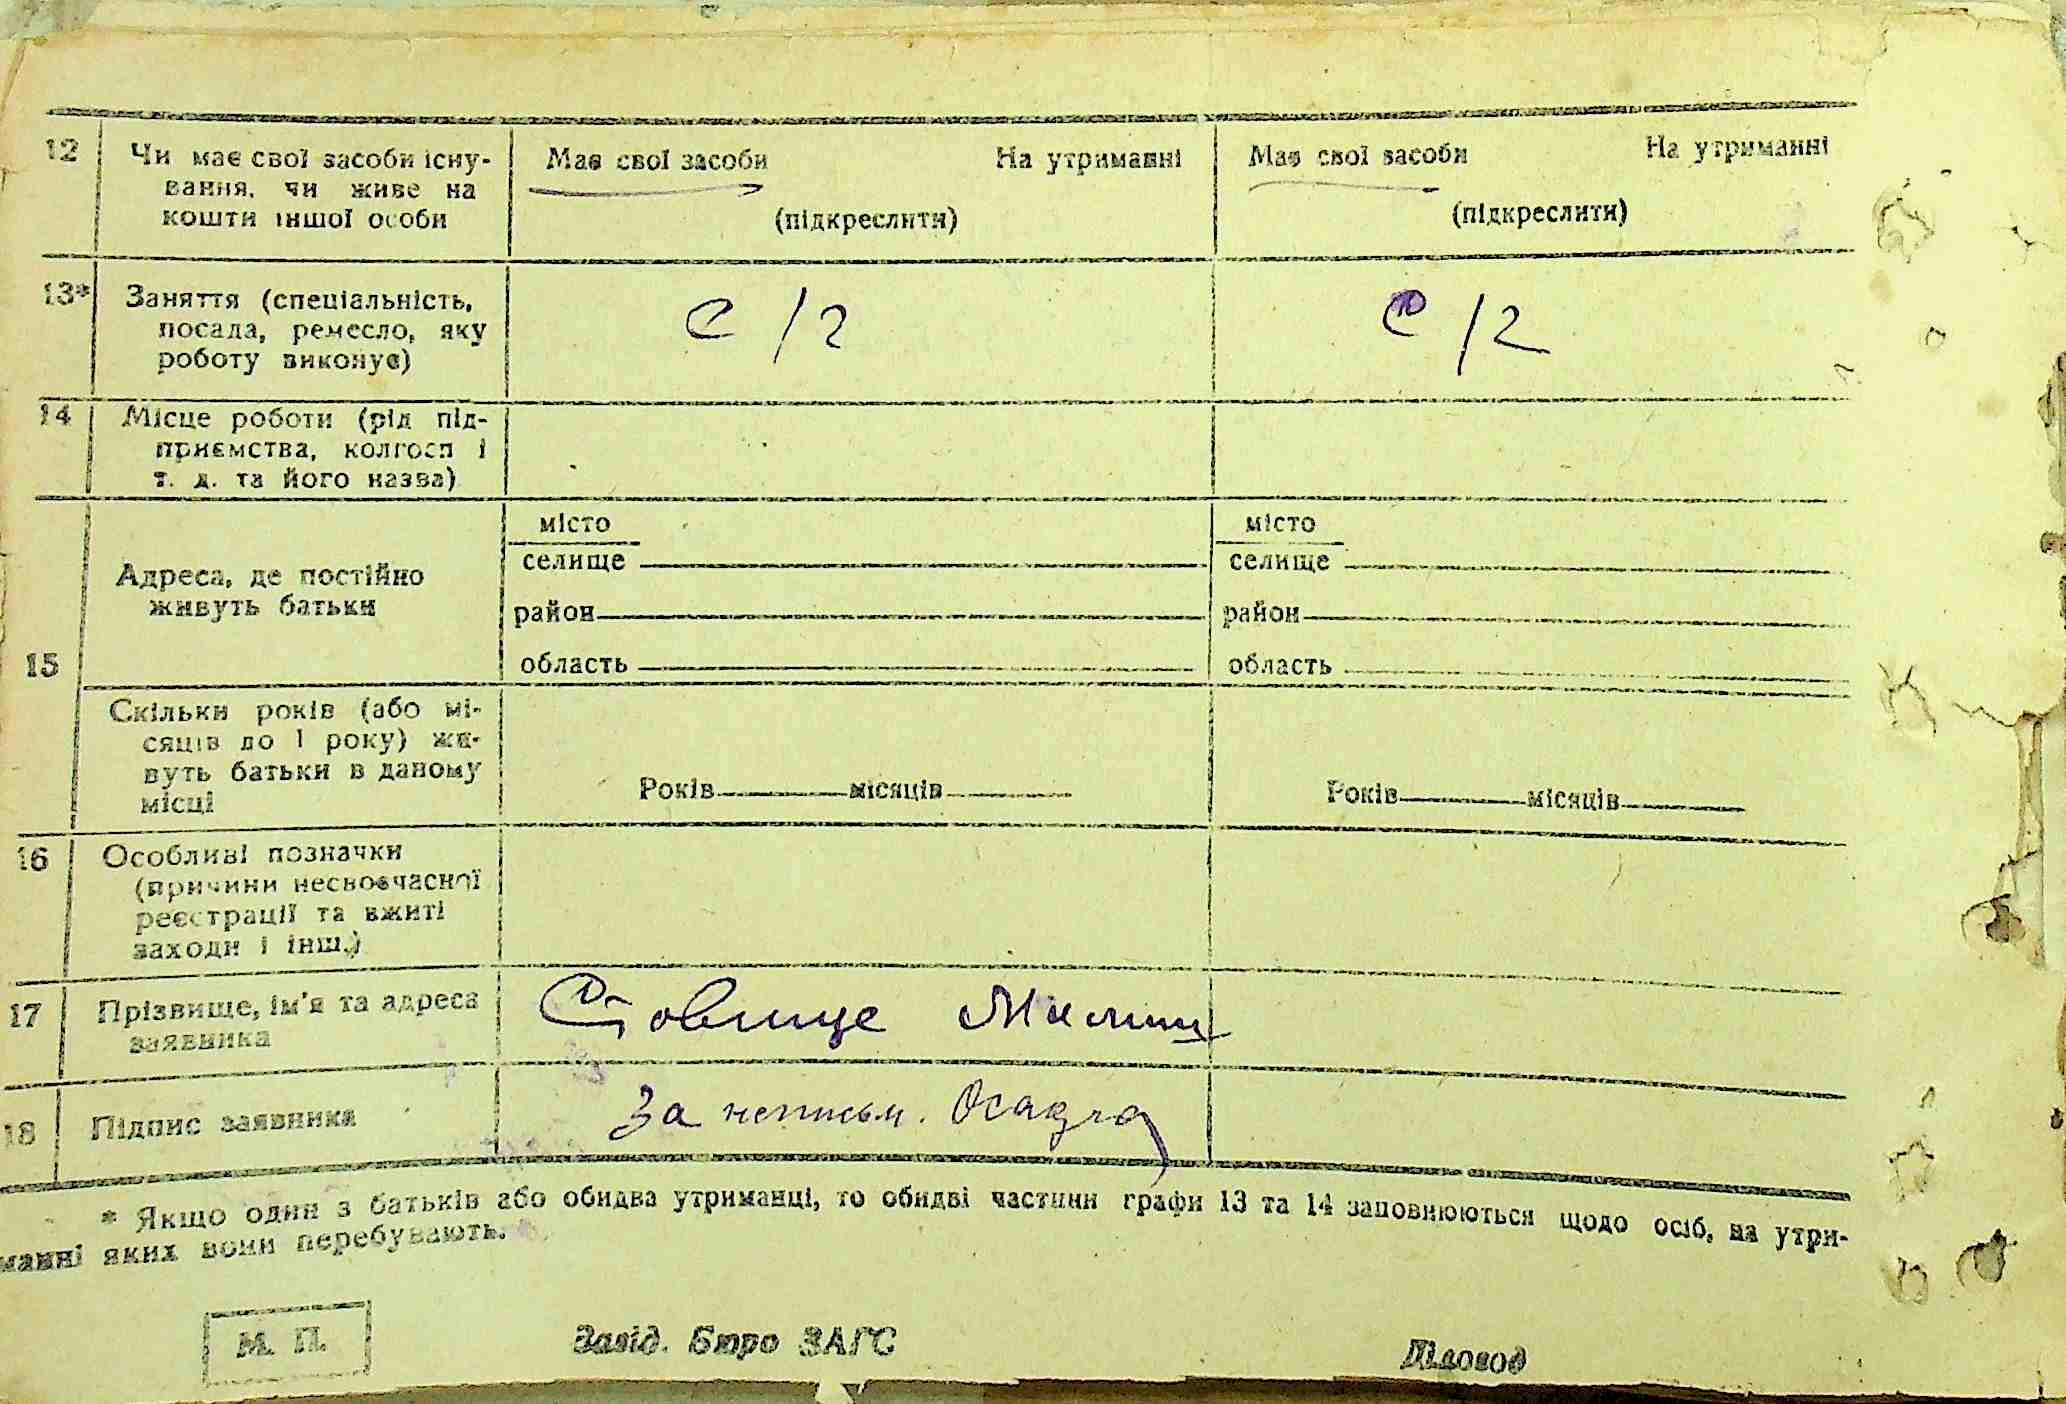 12 Чи має свої засоби існу- Має свої засоби На утриманні Має свої засоби На утриманні
вання, чи живе на
кошти іншої особи (підкреслити) (підкреслити)
13* Заняття (спеціальність,
посада, ремесло, яку с/г с/г
роботу виконує)
14 Місце роботи (рід під-
приємства, колгосп і
т. д. та його назва)
місто місто
селище селище
Адреса, де постійно
живуть батьки район район
15 область область
Скільки років (або мі-
сяців до 1 року) жи-
вуть батьки в даному
місці Років місяців Років місяців
16 Особливі позначки
(причини несвоєчасної
реєстрації та вжиті
заходи і інш.)
17 Прізвище, ім'я та адреса
заявника
18 Підпис заявника За неписьм. Осадча
* Якщо один з батьків або обидва утриманці, то обидві частини графи 13 та 14 заповнюються щодо осіб, на утри-
манні яких вони перебувають.
М. П. Завід. Бюро ЗАГС Діловод